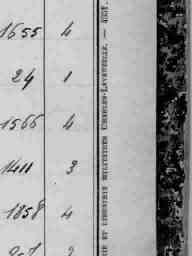 1655 4
24 1
1566 4
1411 3
1858 4
ET LIBRAIRIE MILITAIRES CHARLES-LAVAUZELLE. —